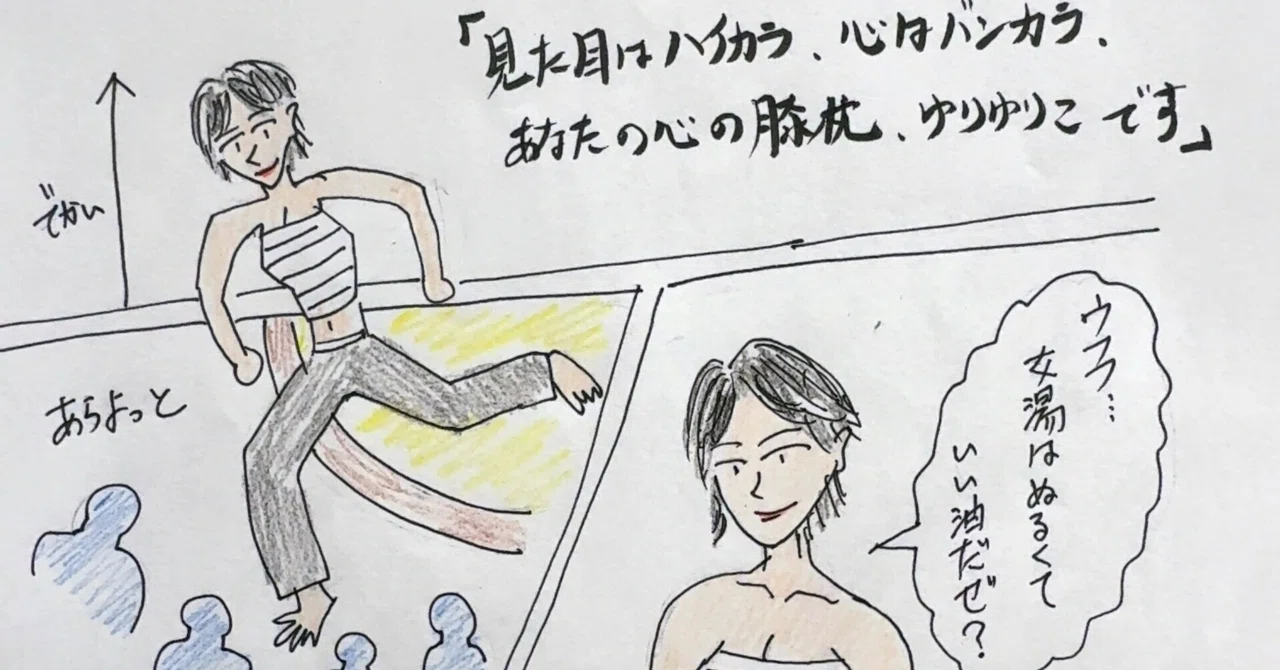 「見た目はハイカラ、心はバンカラ、
あなたの心の膝枕、ゆりゆりこです」
でかい
あらよっと
ウフフ…
女湯はぬるくて
いい油だぜ？